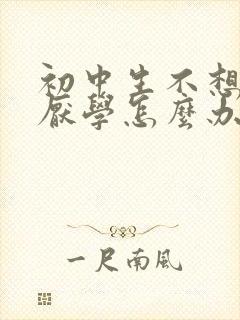 初中生不想
厭學怎麼办
一尺南風